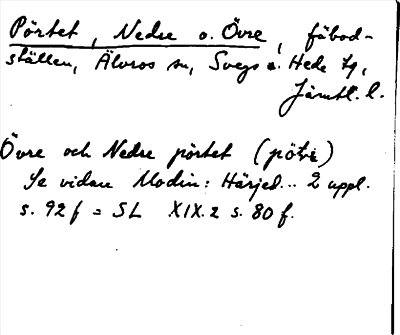 Pörtet, Nedre o. Övre, fäbod-
ställen, Älvros sn, Svegs o. Hede tg,
Jämtl. l.
Övre och Nedre pörtet (pöte)
Se vidare Modin: Härjed... 2 uppl.
s. 92 f = SL XIX.2 s. 80 f.